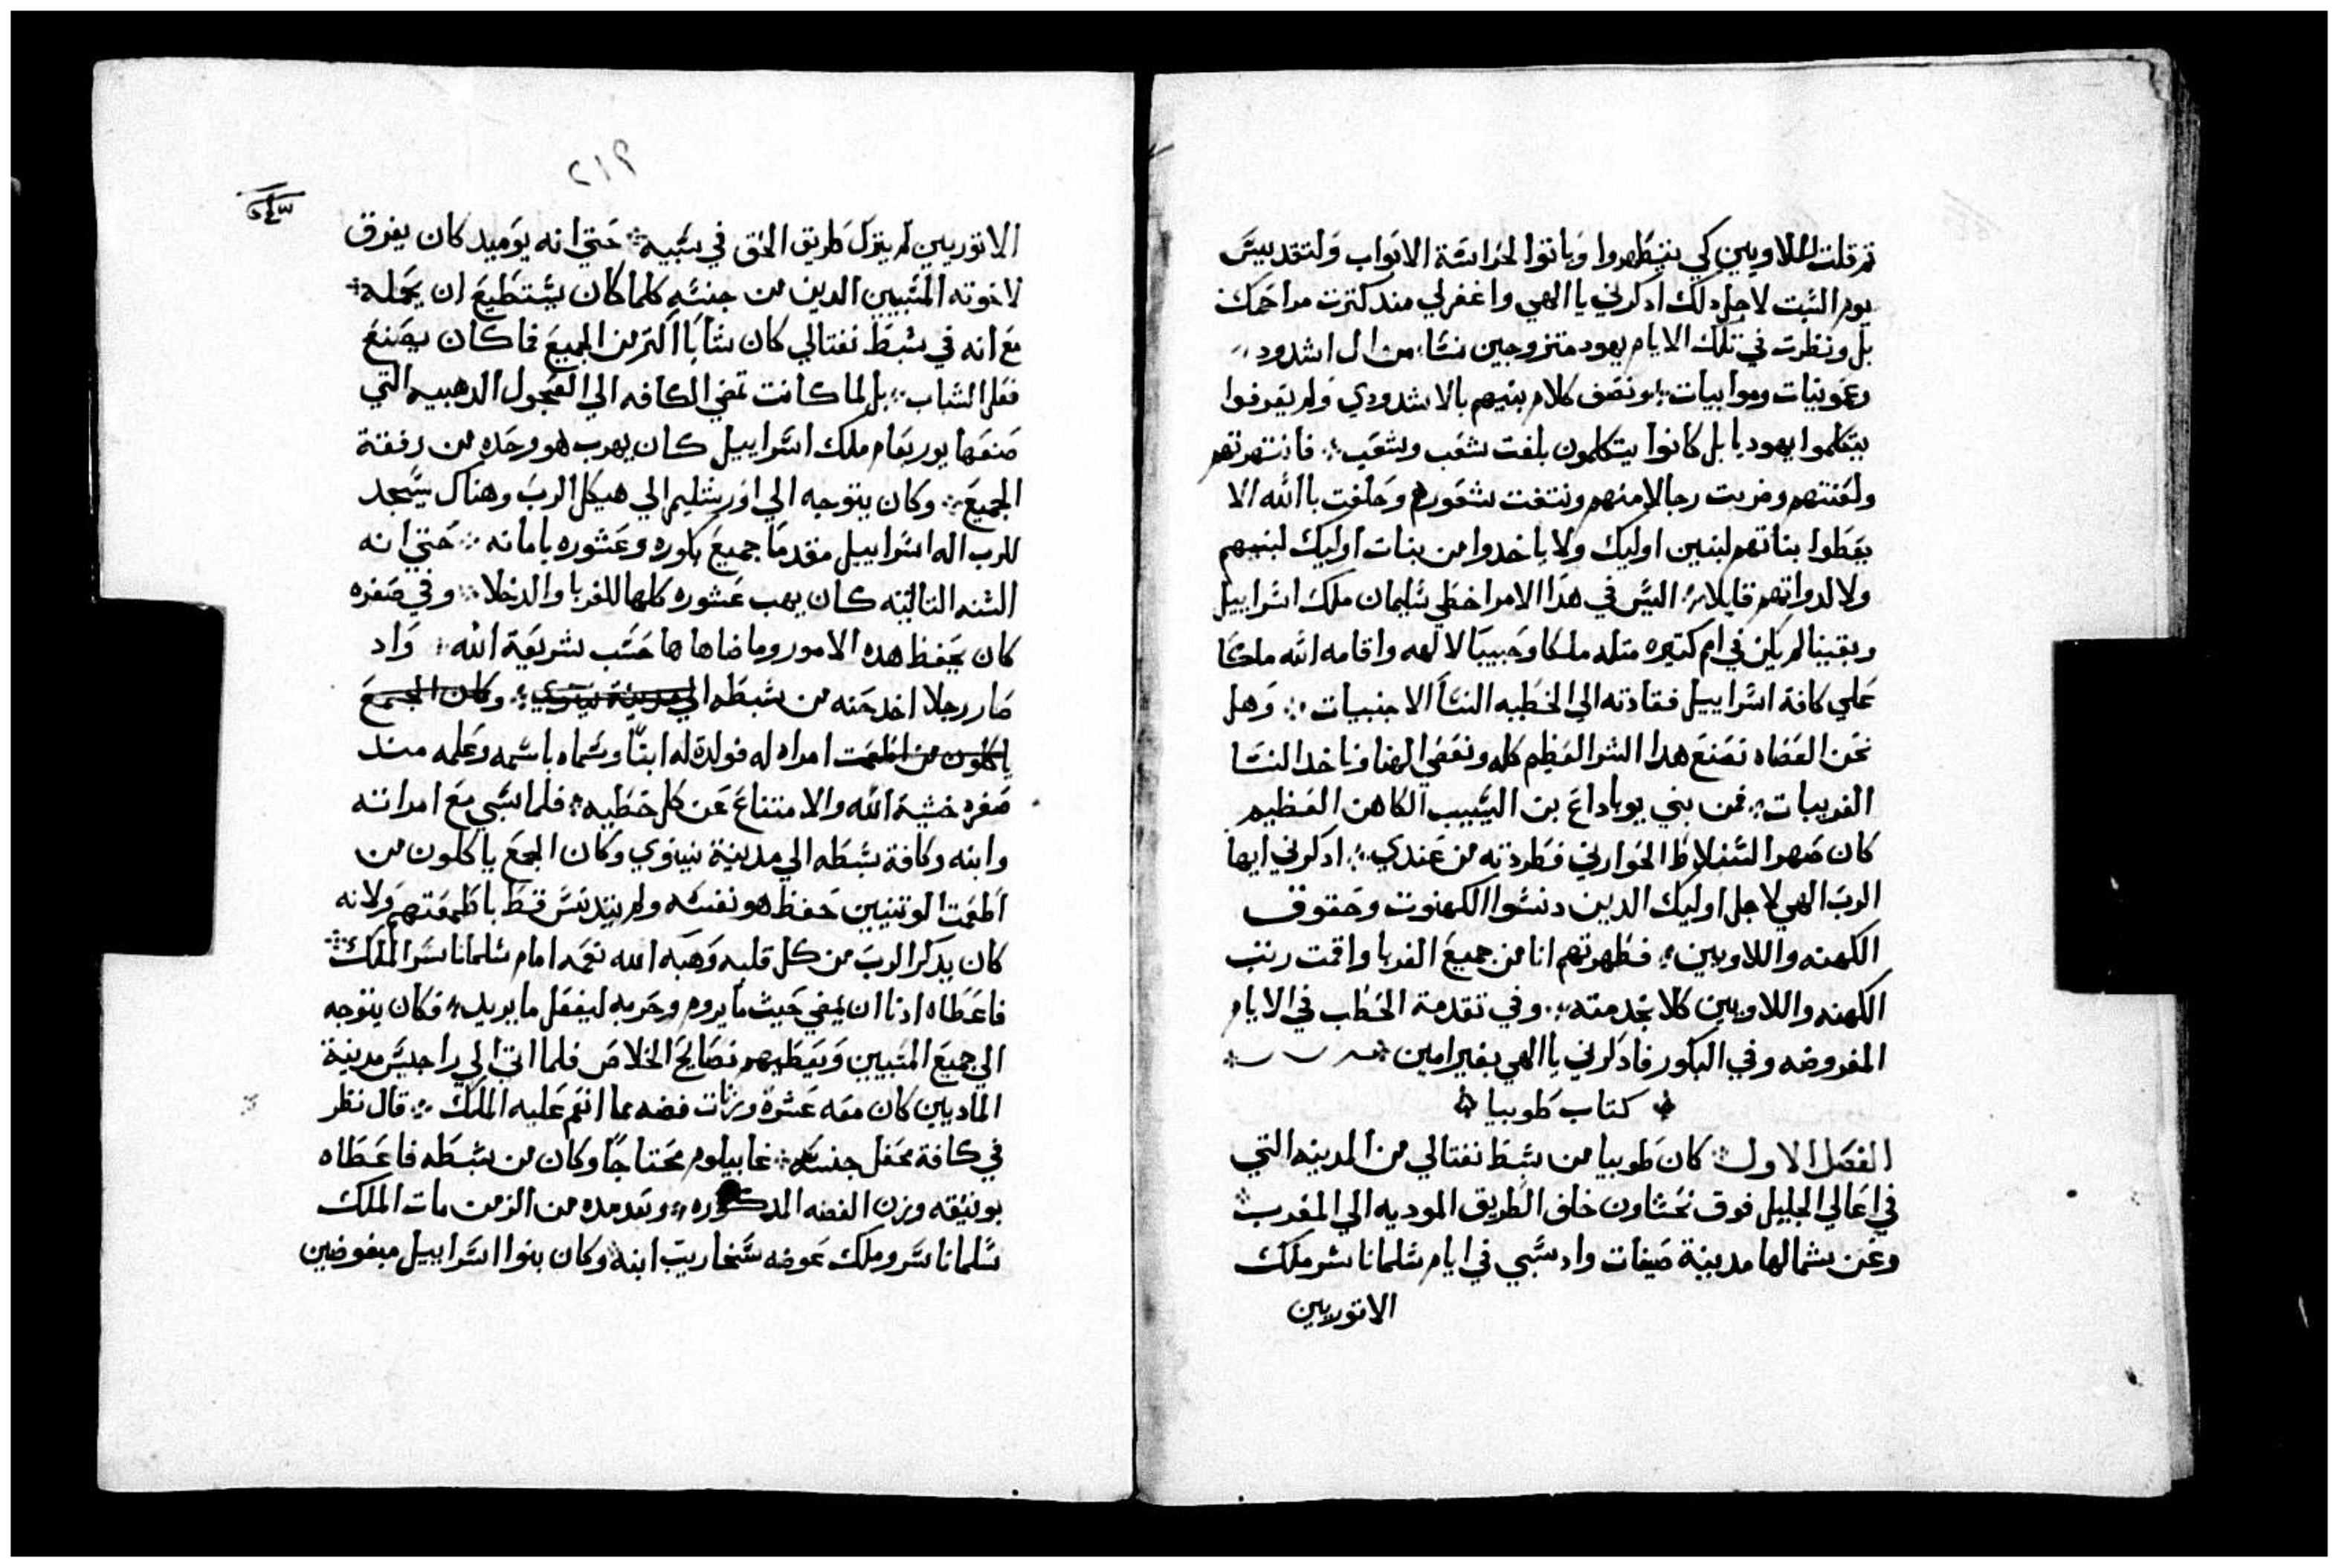 تم قلت للاويين كي يتطهروا وياتوا لحراسة الابواب ولتقديس
يوم السبت لاجل دلك ادكرني يا الهي واغفر لي مند كترت مراحمك
بل ونظرت في تلك الايام يهود متزوجين نسا من ال اشدود
وعمونيات وموابيات ونصف كلام بنيهم بالاشدودي ولم يعرفوا
يتكلموا يهوديا بل كانوا يتكلمون بلغت شعب وشعب فانتهرتهم
ولعنتهم وضربت رجالا منهم ونتفت شعورهم وحلفت بالله الا
يعطوا بناتهم لبنين اوليك ولا ياخدوا من بنات اوليك لبنيهم
ولا لدواتهم قايلا اليس في هدا الامر اخطي سليمان ملك اسراييل
ويقينا لم يكن في امم كتيره متله ملكا وحبيبا لالهه واقامه الله ملكا
علي كافة اسراييل فقادته الي الخطيه النسا الاجنبيات وهل
نحن العصاه نصنع هدا الشر العظيم كله ونعصي الهنا وناخد النسا
الغريبات فمن بني يوياداع بن اليسيب الكاهن العظيم
كان صهر السنفلاط الحواراني فطردته من عندي ادكرني ايها
الرب الهي لاجل اوليك الدين دنسوا الكهنوت وحقوق
الكهنه واللاويين فطهرتهم انا من جميع الغربا واقمت رتب
الكهنه واللاويين كلا بخدمته وفي تقدمة الحطب في الايام
المفروضه وفي البكور فادكرني يا الهي بخير امين
كتاب طوبيا
الفصل الاول كان طوبيا من سبط نفتالي من المدينه التي
في اعالي الجليل فوق نحشاون خلف الطريق الموديه الي المغرب
وعن شمالها مدينة صيفات واد سبي في ايام شلماناشر ملك
الاتوريين
٢١٩
٢٤٣
الاتوريين لم يترك طريق الحق في سبيه حتي انه يوميد كان يفرق
لاخوته المسبيين الدين من جنسه كلما كان يستطيع ان يحمله
مع انه في سبط نفتالي كان شابا اكتر من الجميع فما كان يصنع
فعل الشباب بل لما كانت تمضي الكافه الي العجول الدهبيه التي
صنعها يوربعام ملك اسراييل كان يهرب هو وحده من رفقة
الجميع وكان يتوجه الي اورشليم الي هيكل الرب وهناك يسجد
للرب اله اسراييل مقدما جميع بكوره وعشوره بامانه حتي انه
السنه التالته كان يهب عشوره كلها للغربا والدخلا وفي صغره
كان يحفظ هده الامور وما ضاهاها حسب شريعة الله واد
صار رجلا اخد حنه من سبطه الي مدينة نينوي وكان الجميع
ياكلون من اطعمت امراه له فولدة له ابنا وسماه باسمه وعلمه مند
صغره خشية الله والامتناع عن كل خطيه فلما سبي مع امراته
وابنه وكافة سبطه الي مدينة نينوي وكان الجمع ياكلون من
اطعمت الوتنيين حفظ هو نفسه ولم يتدنس قط باطعمتهم ولانه
كان يدكر الرب من كل قلبه وهبه الله نعمه امام شلماناسر الملك
فاعطاه ادنا ان يمضي حيث ما يروم وحريه ليفعل ما يريد فكان يتوجه
الي جميع المسبيين ويعطيهم نصايح الخلاص فلما اتي الي راجيس مدينة
الماديين كان معه عشرة وزنات فضه مما انعم عليه الملك قال نظر
في كافة محفل جنسه غابيلوم محتاجا وكان من سبطه فاعطاه
بوتيقه وزن الفضه المدكوره وبعد مده من الزمن مات الملك
شلماناسر وملك عوضه سنحاريب ابنه وكان بنوا اسراييل مبغوضين